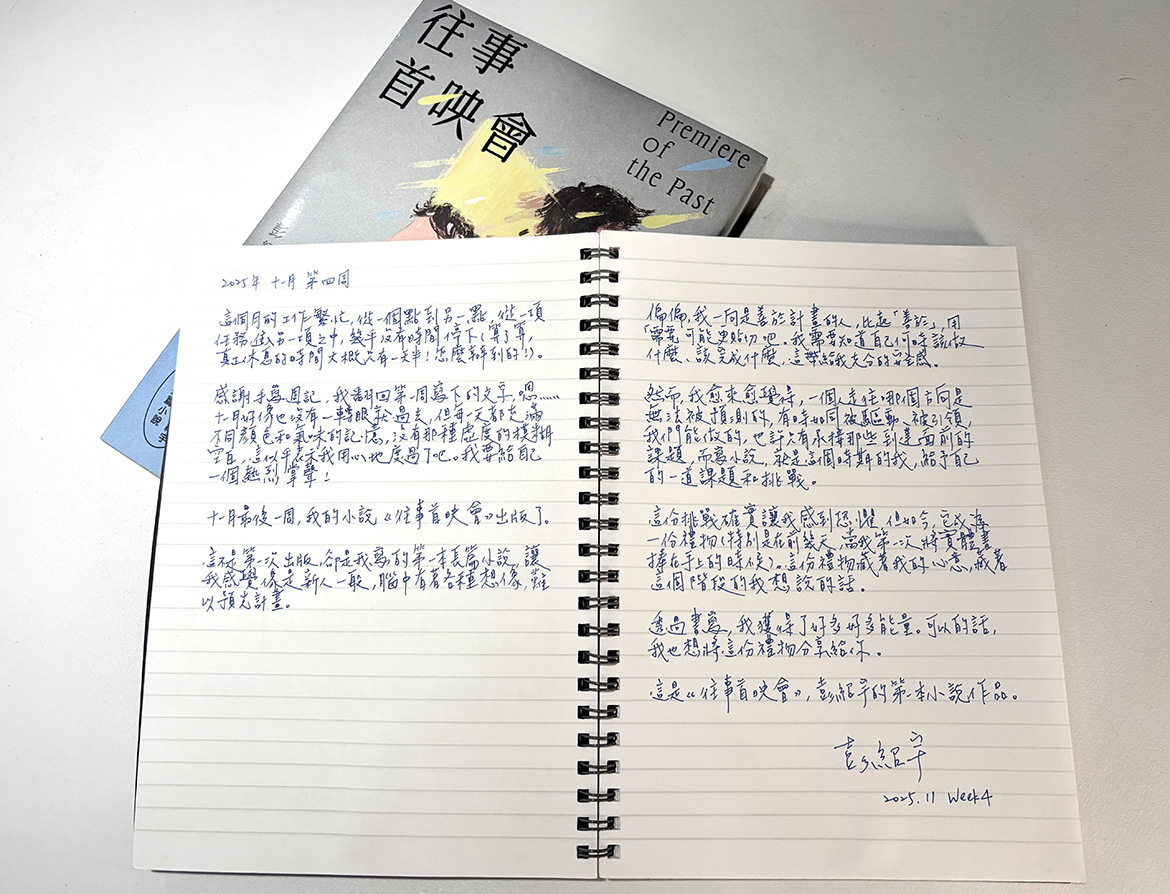 往事
首映會
Premiere
of
the Past
小說
2025年 十一月 第四周
這個月的工作繁忙，從一個點到另一點，從一項
任務進入另一項之中，幾乎沒有時間停下（算了算，
真正休息的時間大概只有一天半！怎麼辦到的！）。
感謝手寫週記，我翻回第一周寫下的文字，嗯……
十一月好像也沒有一轉眼就過去，但每一天都充滿
不同顏色和氣味的記憶，沒有那種虛度的模糊
空白，這似乎表示我用心地度過了吧。我要給自己
一個熱烈掌聲！
十一月最後一周，我的小說《往事首映會》出版了。
這不是第一次出版，卻是我寫的第一本長篇小說，讓
我感覺像是新人一般，腦中有著各種想像，難
以預先計畫。
偏偏，我一向是善於計畫的人，比起「善於」，用
「需要」可能更貼切吧。我需要知道自己何時該做
什麼、該完成什麼，這帶給我充分的安全感。
然而，我愈來愈覺得，一個人走往哪個方向是
無法被預測的，有時如同被驅動、被引領，
我們能做的，也許只有承接那些到達面前的
課題，而寫小說，就是這個時期的我，給予自己
的一道課題和挑戰。
這份挑戰確實讓我感到恐懼，但如今，它成為
一份禮物（特別是在前幾天，當我第一次將實體書
捧在手上的時候）。這份禮物藏著我的心意，藏著
這個階段的我想說的話。
透過書寫，我獲得了好多好多能量。可以的話，
我也想將這份禮物分享給你。
這是《往事首映會》，彭紹宇的第一本小說作品。
彭紹宇
2025.11 Week4